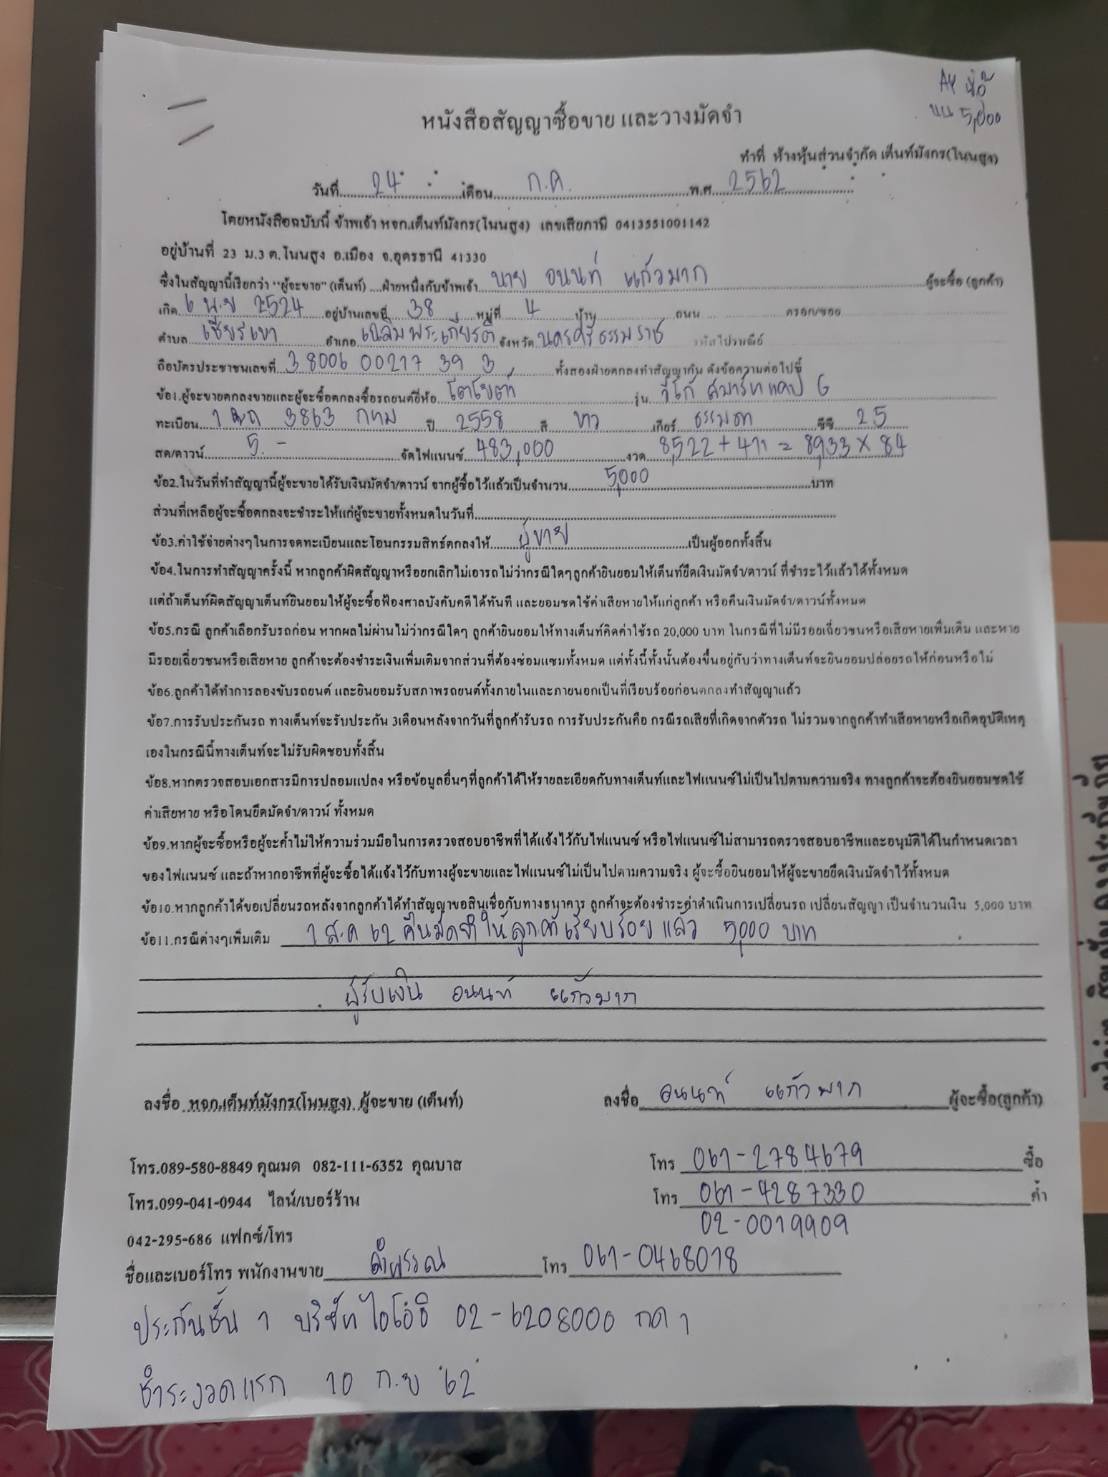 AY
5,000
หนังสือสัญญาซื้อขาย และวางมัดจำ
ทำที่ ห้างหุ้นส่วนจำกัด เต็นท์มังกร(โนนสูง)
วันที่ 24 เดือน ก.ค. พ.ศ. 2562
โดยหนังสือฉบับนี้ ข้าพเจ้า หจก.เต็นท์มังกร(โนนสูง) เลขเสียภาษี 0413551001142
อยู่บ้านที่ 23 ม.3 ต.โนนสูง อ.เมือง จ.อุดรธานี 41330
ซึ่งในสัญญานี้เรียกว่า "ผู้จะขาย" (เต็นท์) ....ฝ่ายหนึ่งกับข้าพเจ้า นาย อนนท์ แก้วมาก ผู้จะซื้อ (ลูกค้า)
เกิด 6 พ.ย 2524 อยู่บ้านเลขที่ 38 หมู่ที่ 4 บ้าน ถนน ตรอก/ซอย
ตำบล เชียรเขา อำเภอ เฉลิมพระเกียรติ จังหวัด นครศรีธรรมราช รหัสไปรษณีย์
ถือบัตรประชาชนเลขที่ 3 8006 00217 39 3 ทั้งสองฝ่ายตกลงทำสัญญากัน ดังข้อความต่อไปนี้
ข้อ1.ผู้จะขายตกลงขายและผู้จะซื้อตกลงซื้อรถยนต์ยี่ห้อ โตโยต้า รุ่น วีโก้ สมาร์ทแคป G
ทะเบียน 1 ฒถ 3863 กทม ปี 2558 สี ขาว เกียร์ ธรรมดา ซีซี 2.5
สด/ดาวน์ 5.- จัดไฟแนนซ์ 483,000 งวด 8,522 + 411 = 8,933 × 84
ข้อ2.ในวันที่ทำสัญญานี้ผู้จะขายได้รับเงินมัดจำ/ดาวน์ จากผู้ซื้อไว้แล้วเป็นจำนวน 5,000 บาท
ส่วนที่เหลือผู้จะซื้อตกลงจะชำระให้แก่ผู้จะขายทั้งหมดในวันที่
ข้อ3.ค่าใช้จ่ายต่างๆในการจดทะเบียนและโอนกรรมสิทธิ์ตกลงให้ ผู้ขาย เป็นผู้ออกทั้งสิ้น
ข้อ4.ในการทำสัญญาครั้งนี้ หากลูกค้าผิดสัญญาหรือยกเลิกไม่เอารถไม่ว่ากรณีใดๆลูกค้ายินยอมให้เต็นท์ยึดเงินมัดจำ/ดาวน์ ที่ชำระไว้แล้วได้ทั้งหมด
แต่ถ้าเต็นท์ผิดสัญญาเต็นท์ยินยอมให้ผู้จะซื้อฟ้องศาลบังคับคดีได้ทันที และยอมชดใช้ค่าเสียหายให้แก่ลูกค้า หรือคืนเงินมัดจำ/ดาวน์ทั้งหมด
ข้อ5.กรณี ลูกค้าเลือกรับรถก่อน หากผลไม่ผ่านไม่ว่ากรณีใดๆ ลูกค้ายินยอมให้ทางเต็นท์คิดค่าใช้รถ 20,000 บาท ในกรณีที่ไม่มีรอยเฉี่ยวชนหรือเสียหายเพิ่มเติม และหาก
มีรอยเฉี่ยวชนหรือเสียหาย ลูกค้าจะต้องชำระเงินเพิ่มเติมจากส่วนที่ต้องซ่อมแซมทั้งหมด แต่ทั้งนี้ทั้งนั้นต้องขึ้นอยู่กับว่าทางเต็นท์จะยินยอมปล่อยรถให้ก่อนหรือไม่
ข้อ6.ลูกค้าได้ทำการลองขับรถยนต์ และยินยอมรับสภาพรถยนต์ทั้งภายในและภายนอกเป็นที่เรียบร้อยก่อนตกลงทำสัญญาแล้ว
ข้อ7.การรับประกันรถ ทางเต็นท์จะรับประกัน 3เดือนหลังจากวันที่ลูกค้ารับรถ การรับประกันคือ กรณีรถเสียที่เกิดจากตัวรถ ไม่รวมจากลูกค้าทำเสียหายหรือเกิดอุบัติเหตุ
เองในกรณีนี้ทางเต็นท์จะไม่รับผิดชอบทั้งสิ้น
ข้อ8.หากตรวจสอบเอกสารมีการปลอมแปลง หรือข้อมูลอื่นๆที่ลูกค้าได้ให้รายละเอียดกับทางเต็นท์และไฟแนนซ์ไม่เป็นไปตามความจริง ทางลูกค้าจะต้องยินยอมชดใช้
ค่าเสียหาย หรือโดนยึดมัดจำ/ดาวน์ ทั้งหมด
ข้อ9.หากผู้จะซื้อหรือผู้จะค้ำไม่ให้ความร่วมมือในการตรวจสอบอาชีพที่ได้แจ้งไว้กับไฟแนนซ์ หรือไฟแนนซ์ไม่สามารถตรวจสอบอาชีพและอนุมัติได้ในกำหนดเวลา
ของไฟแนนซ์ และถ้าหากอาชีพที่ผู้จะซื้อได้แจ้งไว้กับทางผู้จะขายและไฟแนนซ์ไม่เป็นไปตามความจริง ผู้จะซื้อยินยอมให้ผู้จะขายยึดเงินมัดจำไว้ทั้งหมด
ข้อ10.หากลูกค้าได้ขอเปลี่ยนรถหลังจากลูกค้าได้ทำสัญญาขอสินเชื่อกับทางธนาคาร ลูกค้าจะต้องชำระค่าดำเนินการเปลี่ยนรถ เปลี่ยนสัญญา เป็นจำนวนเงิน 5,000 บาท
ข้อ11.กรณีต่างๆเพิ่มเติม 1 ส.ค 62 คืนมัดจำให้ลูกค้าเรียบร้อยแล้ว 5,000 บาท
ผู้รับเงิน อนนท์ แก้วมาก
ลงชื่อ หจก.เต็นท์มังกร(โนนสูง) ผู้จะขาย (เต็นท์) ลงชื่อ อนนท์ แก้วมาก ผู้จะซื้อ(ลูกค้า)
โทร.089-580-8849 คุณมด 082-111-6352 คุณบาส โทร 061-2784679 ซื้อ
โทร.099-041-0944 ไลน์/เบอร์ร้าน โทร 061-4287330 ค้ำ
02-0019909
042-295-686 แฟกซ์/โทร
ชื่อและเบอร์โทร พนักงานขาย โทร 061-0468018
ประกันชั้น 1 บริษัท ไอโออิ 02-6208000 กด 1
ชำระงวดแรก 10 ก.ย 62